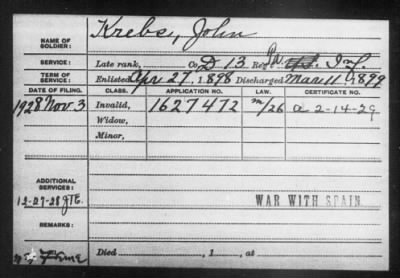 NAME OF SOLDIER: Krebs, John
SERVICE: Late rank, Co. D 13 Reg't Pa. U.S. Inf.
TERM OF SERVICE: Enlisted Apr 27, 1898 Discharged Mar 11, 1899
DATE OF FILING. CLASS. APPLICATION NO. LAW. CERTIFICATE NO.
1928 Nov. 3 Invalid, 1627472 m/26 a 2-14-29
Widow,
Minor,
ADDITIONAL SERVICES:
12-27-28 JTE. WAR WITH SPAIN
Died , 1 , at